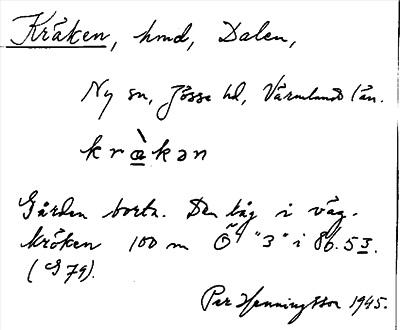 Kråken, hmd, Dalen,
Ny sn, Jösse hd, Värmlands län.
kràkən
Gården borta. Den låg i väg-
kröken 100 m Ö "3" i 86.53.
(G 79).
Per Henningsson 1945.